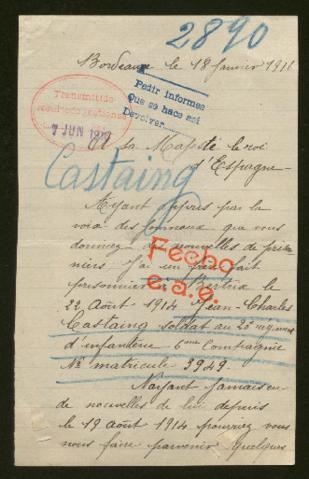 2890
Bordeaux le 18 janvier 1916
Pedir informes
Que se hace así
Devolver
Transmitido
7 JUN 191
A sa Majesté le roi
d'Espagne
Castaing
Ayant appris par la
voix des journaux que vous
donniez de nouvelles de priso
niers J'ai un frère fait
personnier à Bertrix le
Fecho
e.a.e.
22 Août 1914 Jean-Charles
Castaing soldat au 20e régiment
d'infanterie 6ème Compagnie
No matricule 3949.
Nayant Jamais eu
de nouvelles de lui depuis
le 19 août 1914 pourriez vous
nous faire parvenir quelques